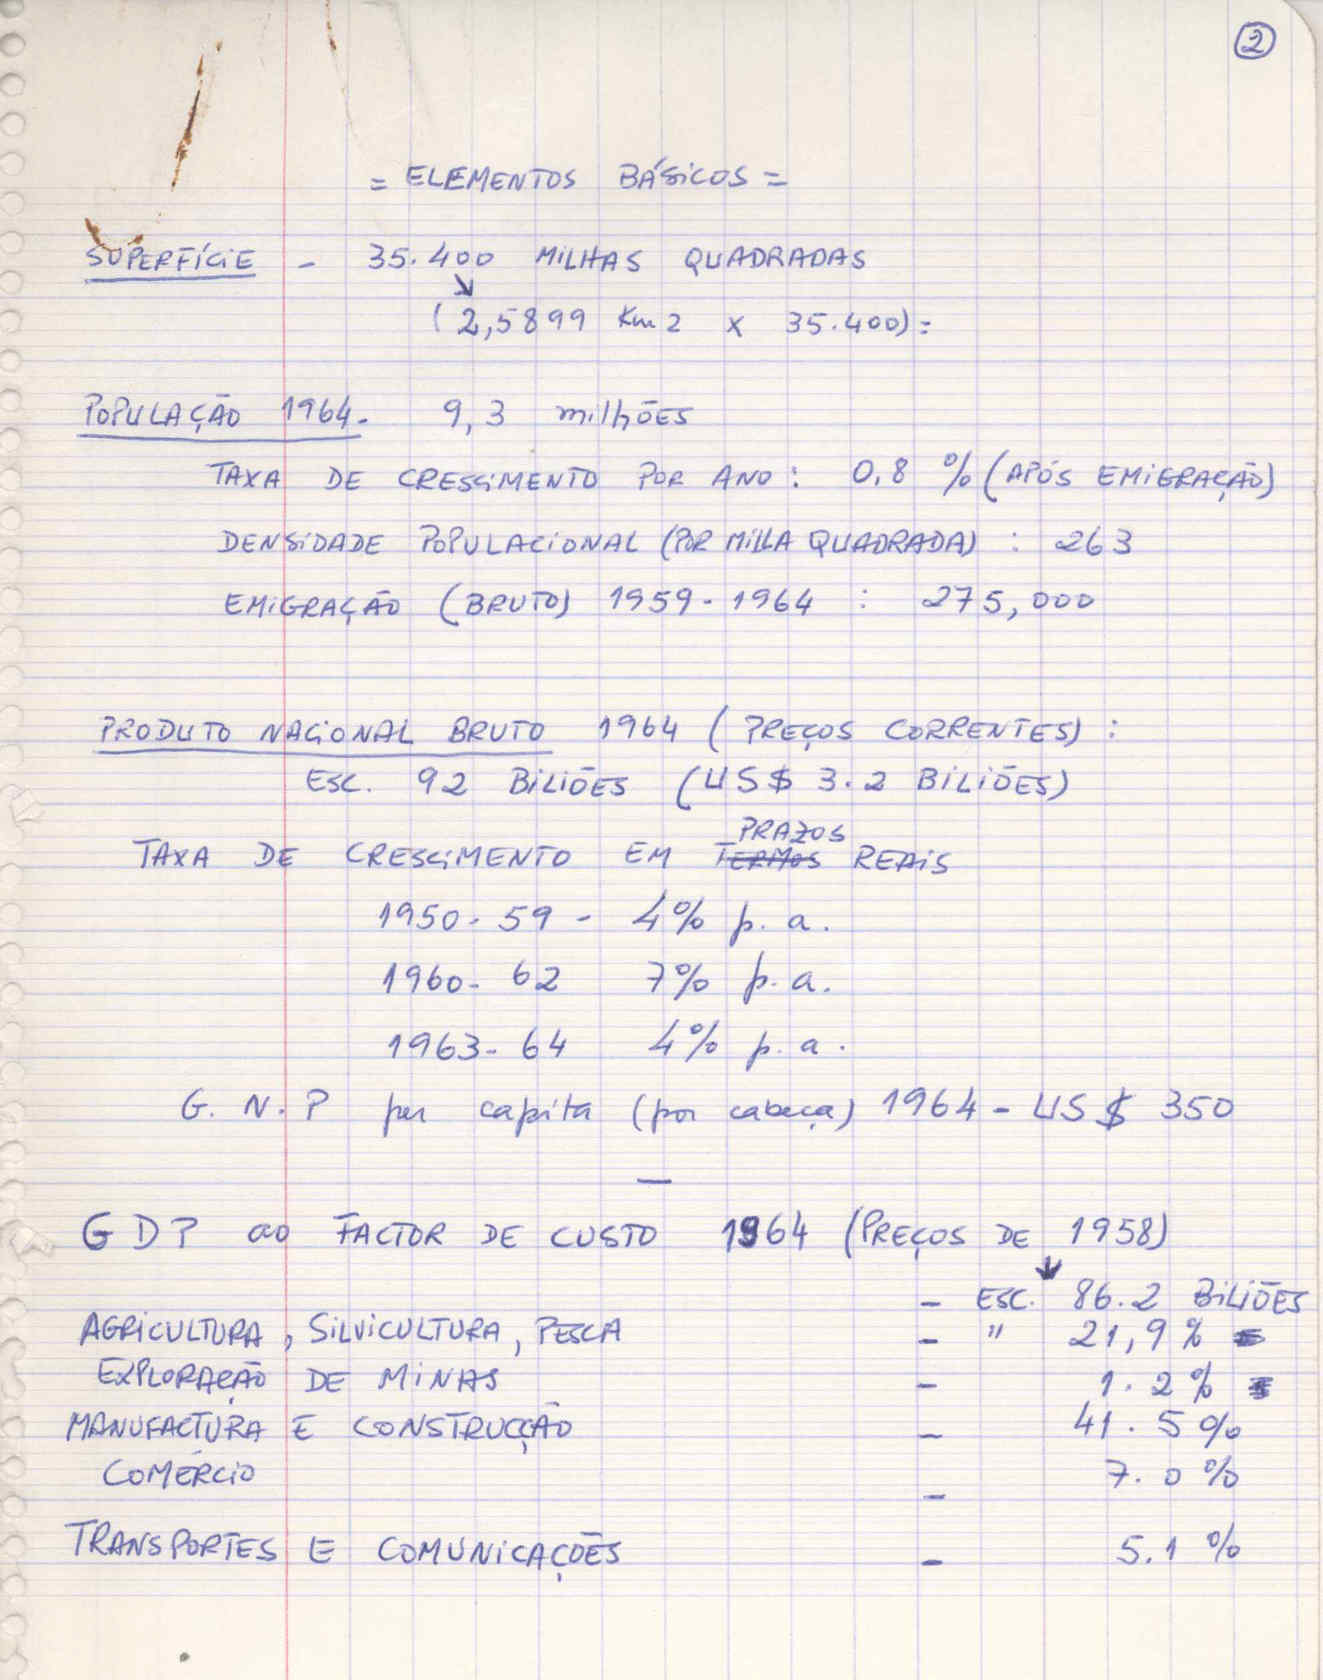 2
= ELEMENTOS BÁSICOS =
SUPERFÍCIE - 35.400 MILHAS QUADRADAS
(2,5899 Km2 x 35.400) =
POPULAÇÃO 1964. 9,3 milhÕES
TAXA DE CRESCIMENTO POR ANO: 0,8 % (APÓS EMIGRAÇÃO)
DENSIDADE POPULACIONAL (POR MILLA QUADRADA) : 263
EMIGRAÇÃO (BRUTO) 1959-1964 : 275,000
PRODUTO NACIONAL BRUTO 1964 (PREÇOS CORRENTES) :
ESC. 92 BILIÕES (US$ 3.2 BILIÕES)
PRAZOS
TAXA DE CRESCIMENTO EM TERMOS REAIS
1950-59 - 4% p.a.
1960-62 7% p.a.
1963-64 4% p.a.
G.N.P per capita (por cabeça) 1964 - US$ 350
—
GDP ao FACTOR DE CUSTO 1964 (PREÇOS DE 1958)
- ESC. 86.2 BILIÕES
AGRICULTURA, SILVICULTURA, PESCA - " 21,9%
EXPLORAÇÃO DE MINAS - 1.2%
MANUFACTURA E CONSTRUCÇÃO - 41.5%
COMÉRCIO - 7.0%
TRANSPORTES E COMUNICAÇÕES - 5.1%